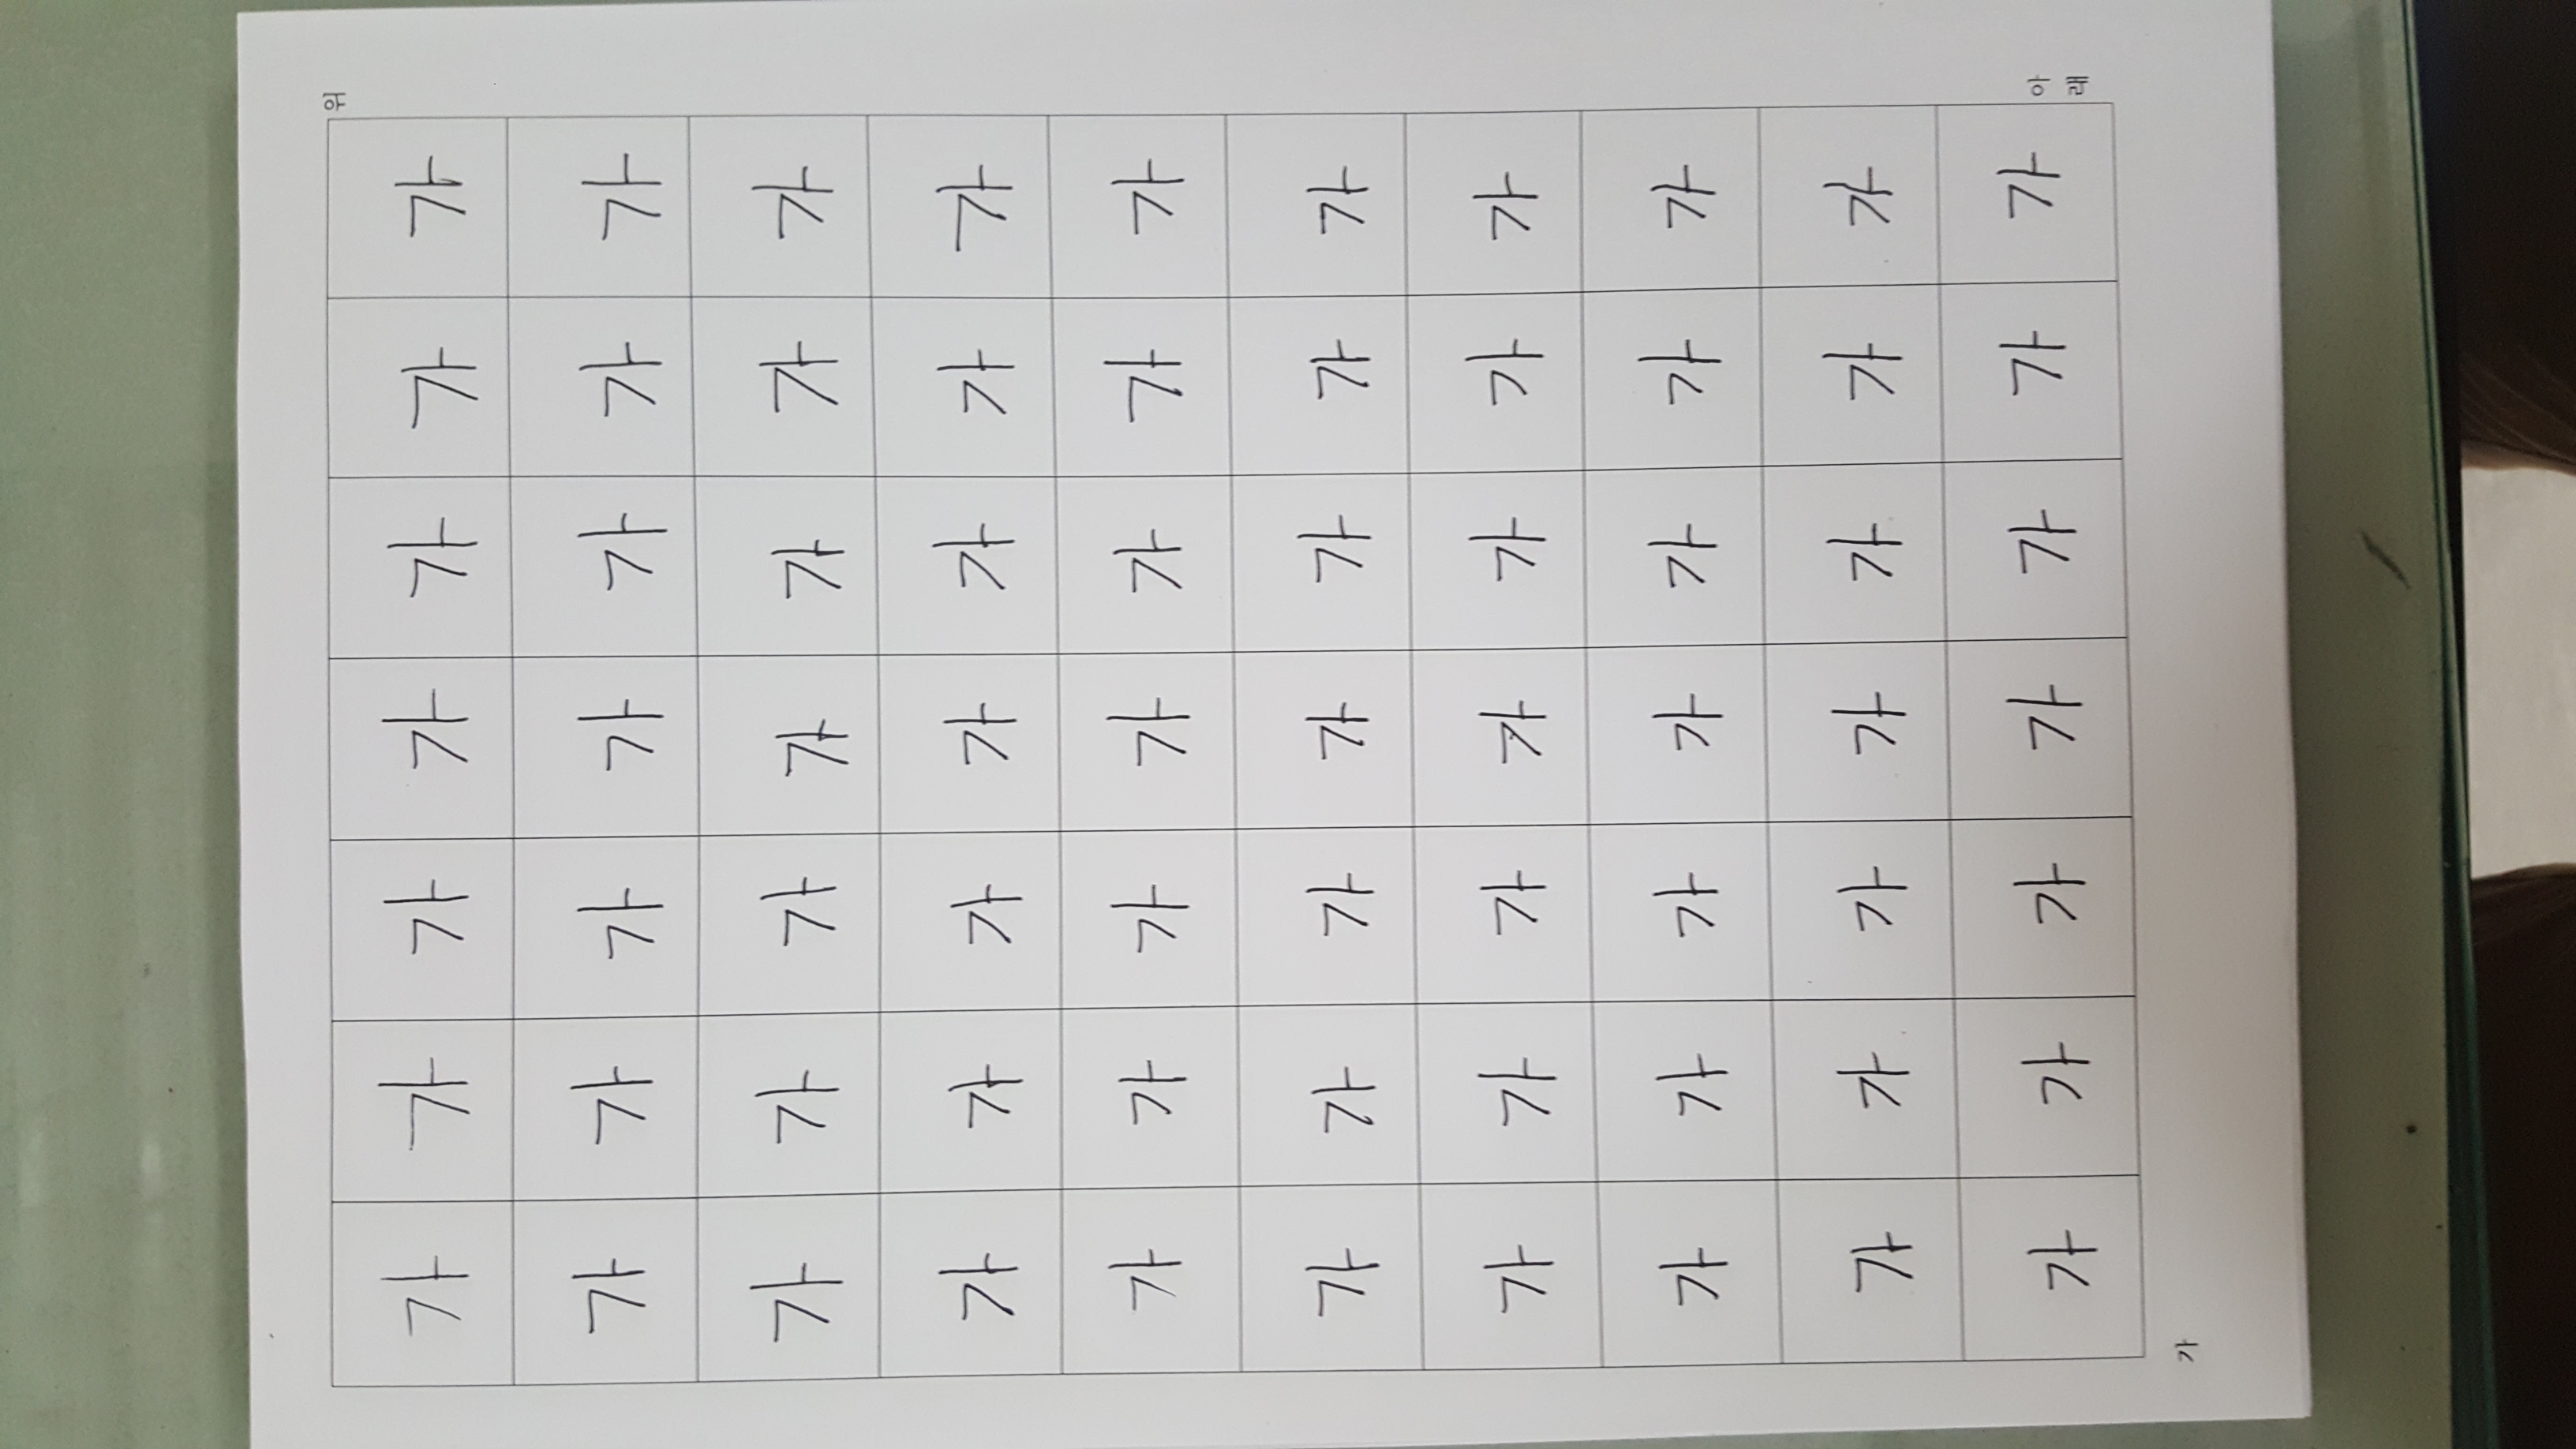 위
가 가 가 가 가 가 가
가 가 가 가 가 가 가
가 가 가 가 가 가 가
가 가 가 가 가 가 가
가 가 가 가 가 가 가
가 가 가 가 가 가 가
가 가 가 가 가 가 가
가 가 가 가 가 가 가
가 가 가 가 가 가 가
가 가 가 가 가 가 가
아
래
가